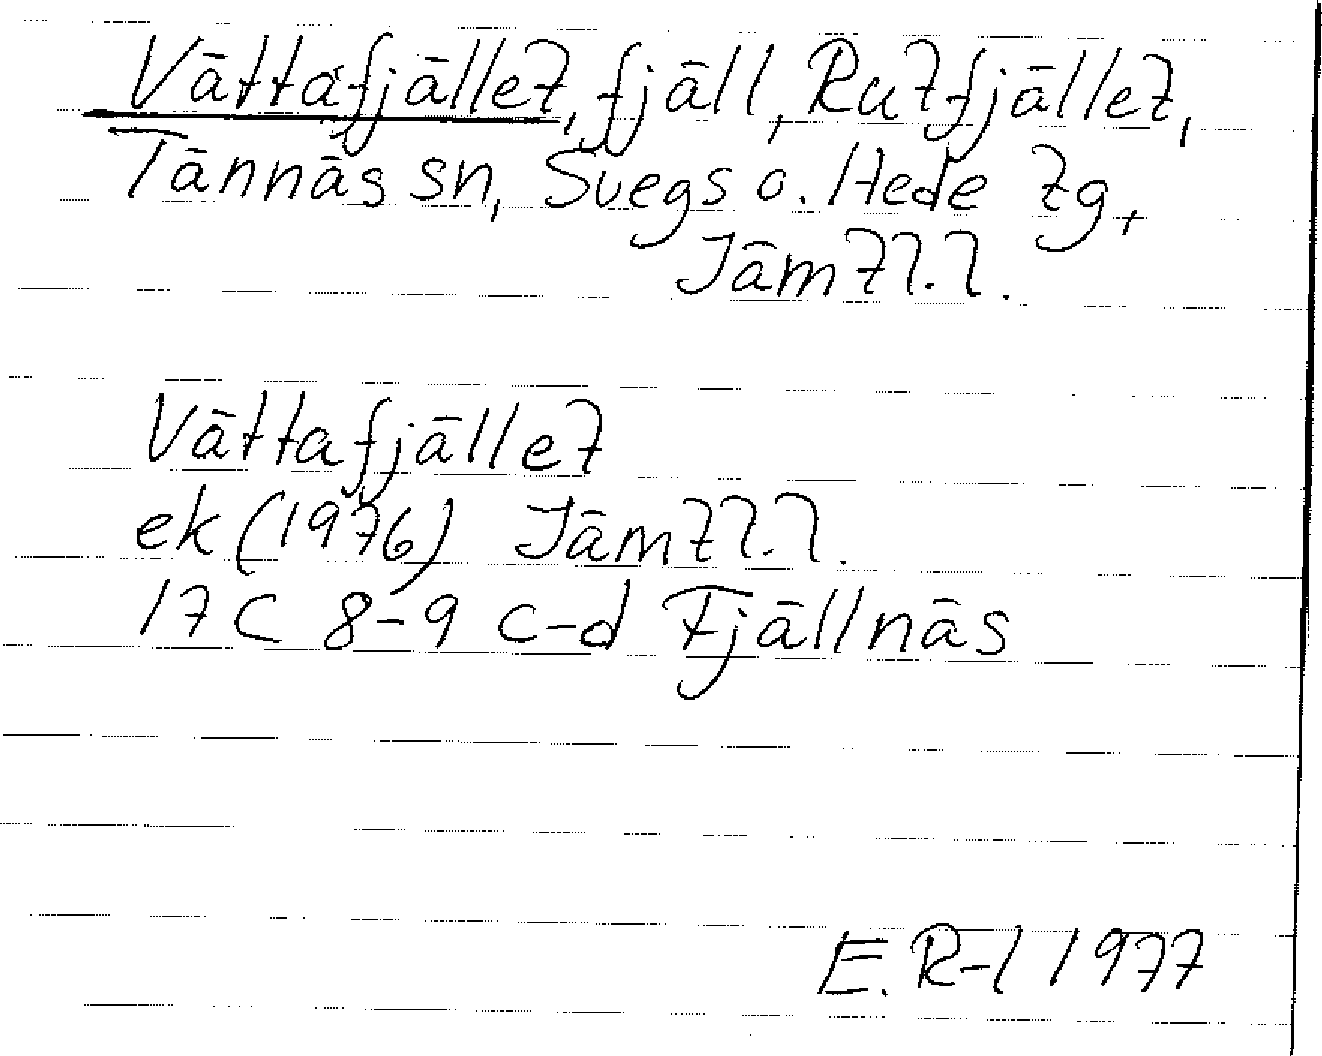 Vättafjället, fjäll, Rutfjället,
Tännäs sn, Svegs o. Hede tg,
Jämtl.l.
Vättafjället
ek (1976) Jämtl.l.
17C 8-9 c-d Fjällnäs
E. R-l 1977